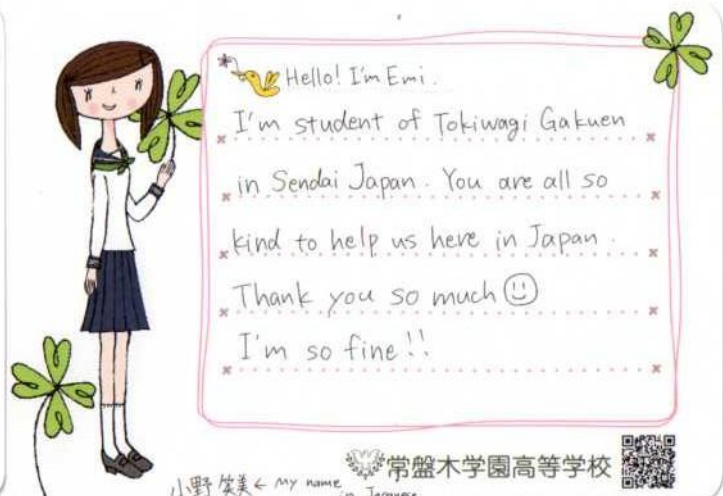 Hello! I'm Emi.
I'm student of Tokiwagi Gakuen
in Sendai Japan. You are all so
kind to help us here in Japan.
Thank you so much
I'm so fine!!
常盤木学園高等学校
小野 笑美 ← My name
in Japanese